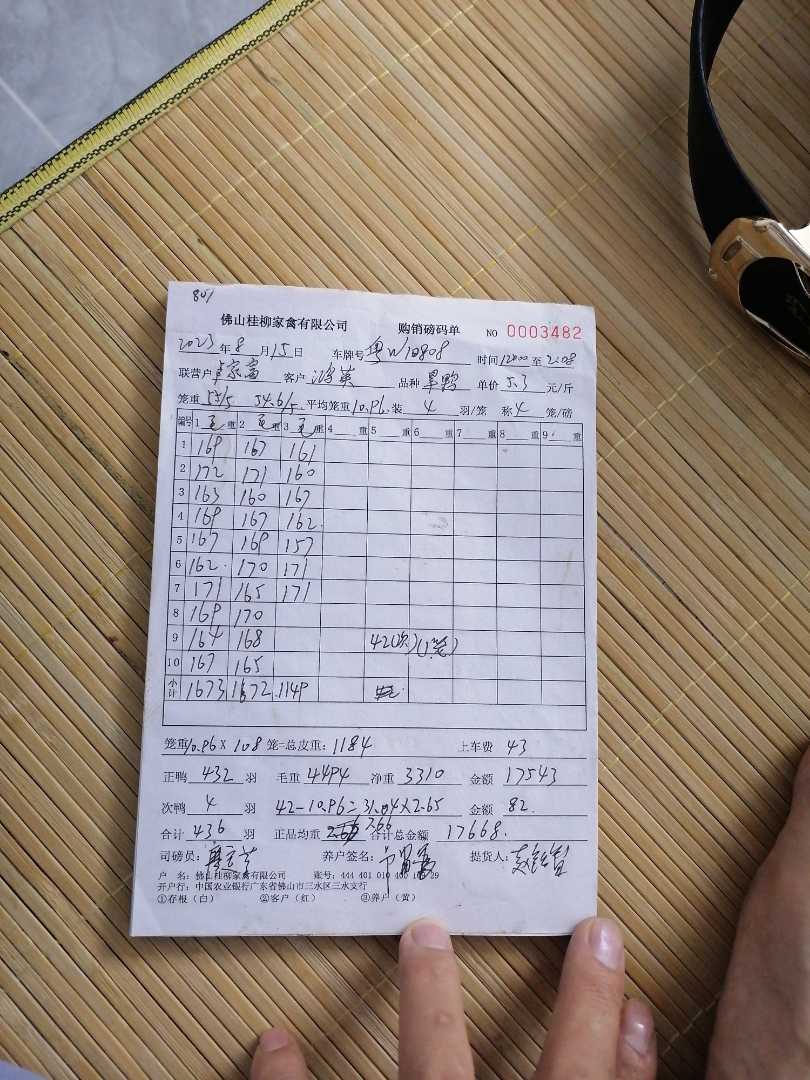 佛山桂柳家禽有限公司 购销磅码单 NO 0003482
2023年8月15日 车牌号 粤W10808 时间 至
联营户 客户 鸿英 品种 单价 5.3 元/斤
笼重 55/5 54.6/5 平均笼重10.96 装 4 羽/笼 称4 笼/磅
编号 1 毛重 2 毛重 3 毛重 4 重 5 重 6 重 7 重 8 重 9 重
1 169 167 161
2 172 171 160
3 163 160 167
4 169 167 162
5 167 169 157
6 162 170 171
7 171 165 171
8 169 170
9 164 168 42(次)(1笼)
10 167 165
小计 1673 1672 1149
笼重10.96×108笼=总皮重：1184 上车费 43
正鸭 432 羽 毛重 4494 净重 3310 金额 17543
次鸭 4 羽 42-10.96=31.04×2.65 金额 82.
合计 436 羽 正品均重 7.66 合计总金额 17668.
司磅员： 养户签名： 提货人：
户 名：佛山桂柳家禽有限公司 账号：444 401 010 40
开户行：中国农业银行广东省佛山市三水区三水支行
①存根（白） ②客户（红） ③养户（黄）